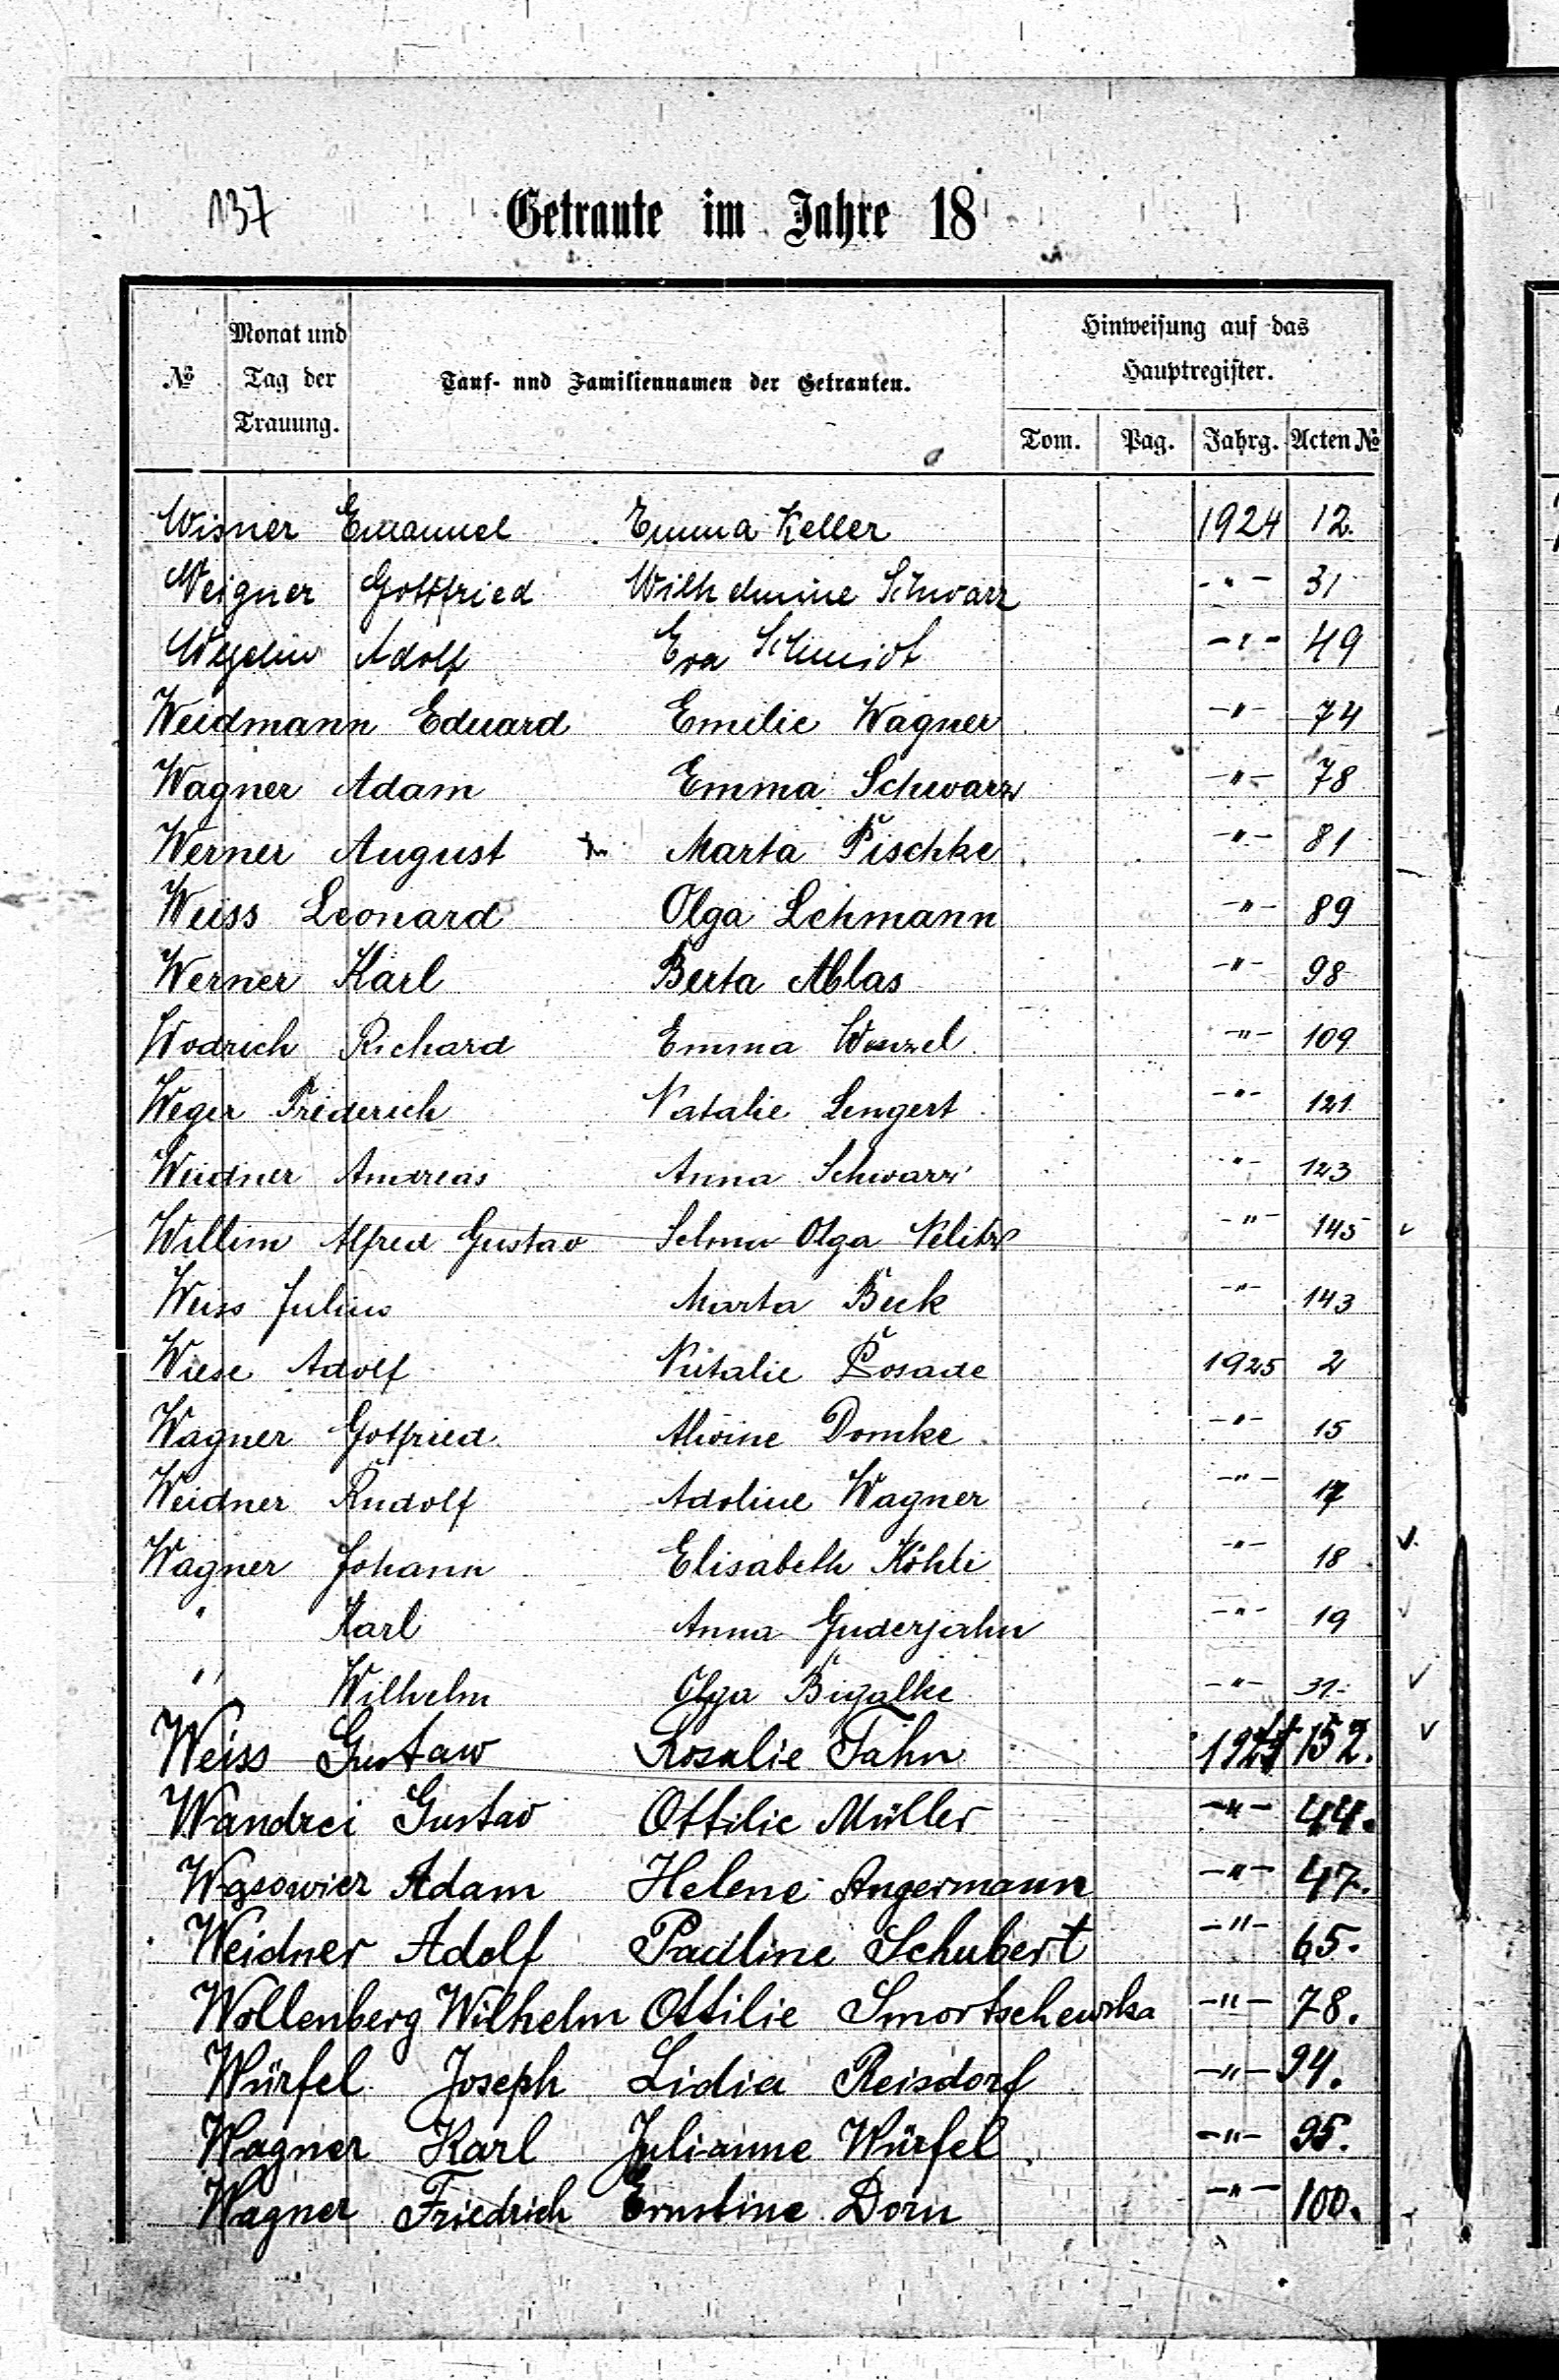 137 Getraute im Jahre 18
№ Monat und Tag der Trauung. Tauf- und Familiennamen der Getrauten. Hinweisung auf das Hauptregister.
Tom. Pag. Jahrg. Acten №
Wisner Emanuel Emma Keller 1924 12.
Weigner Gottfried Wilhelmine Schwarz -"- 31
Wegelin Adolf Eva Schmidt -"- 49
Weidmann Eduard Emilie Wagner -"- 74
Wagner Adam Emma Schwarz -"- 78
Werner August Marta Pischke -"- 81
Weiss Leonard Olga Lehmann -"- 89
Werner Karl Berta Ablas -"- 98
Wodrich Richard Emma Wenzel -"- 109
Weger Friderich Natalie Lengert -"- 121
Weidner Andreas Anna Schwarz -"- 123
Willim Alfred Gustav Selma Olga -"- 145
Weiss Julius Marta Beck -"- 143
Wiese Adolf Natalie Posade 1925 2
Wagner Gotfried Alwine Domke -"- 15
Weidner Rudolf Adoline Wagner -"- 17
Wagner Johann Elisabeth Köhli -"- 18
" Karl Anna Guderjahn -"- 19
" Wilhelm Olga Bigalke -"- 31.
Weiss Gustaw Rosalie Jahn 1924 152.
Wandrei Gustav Ottilie Müller -"- 44.
Wąsowicz Adam Helene Angermann -"- 47.
Weidner Adolf Pauline Schubert -"- 65.
Wollenberg Wilhelm Ottilie Smortschewska -"- 78.
Würfel Joseph Lidia Reisdorf -"- 94.
Wagner Karl Julianne Würfel -"- 95.
Wagner Friedrich Ernstine Dorn -"- 100.